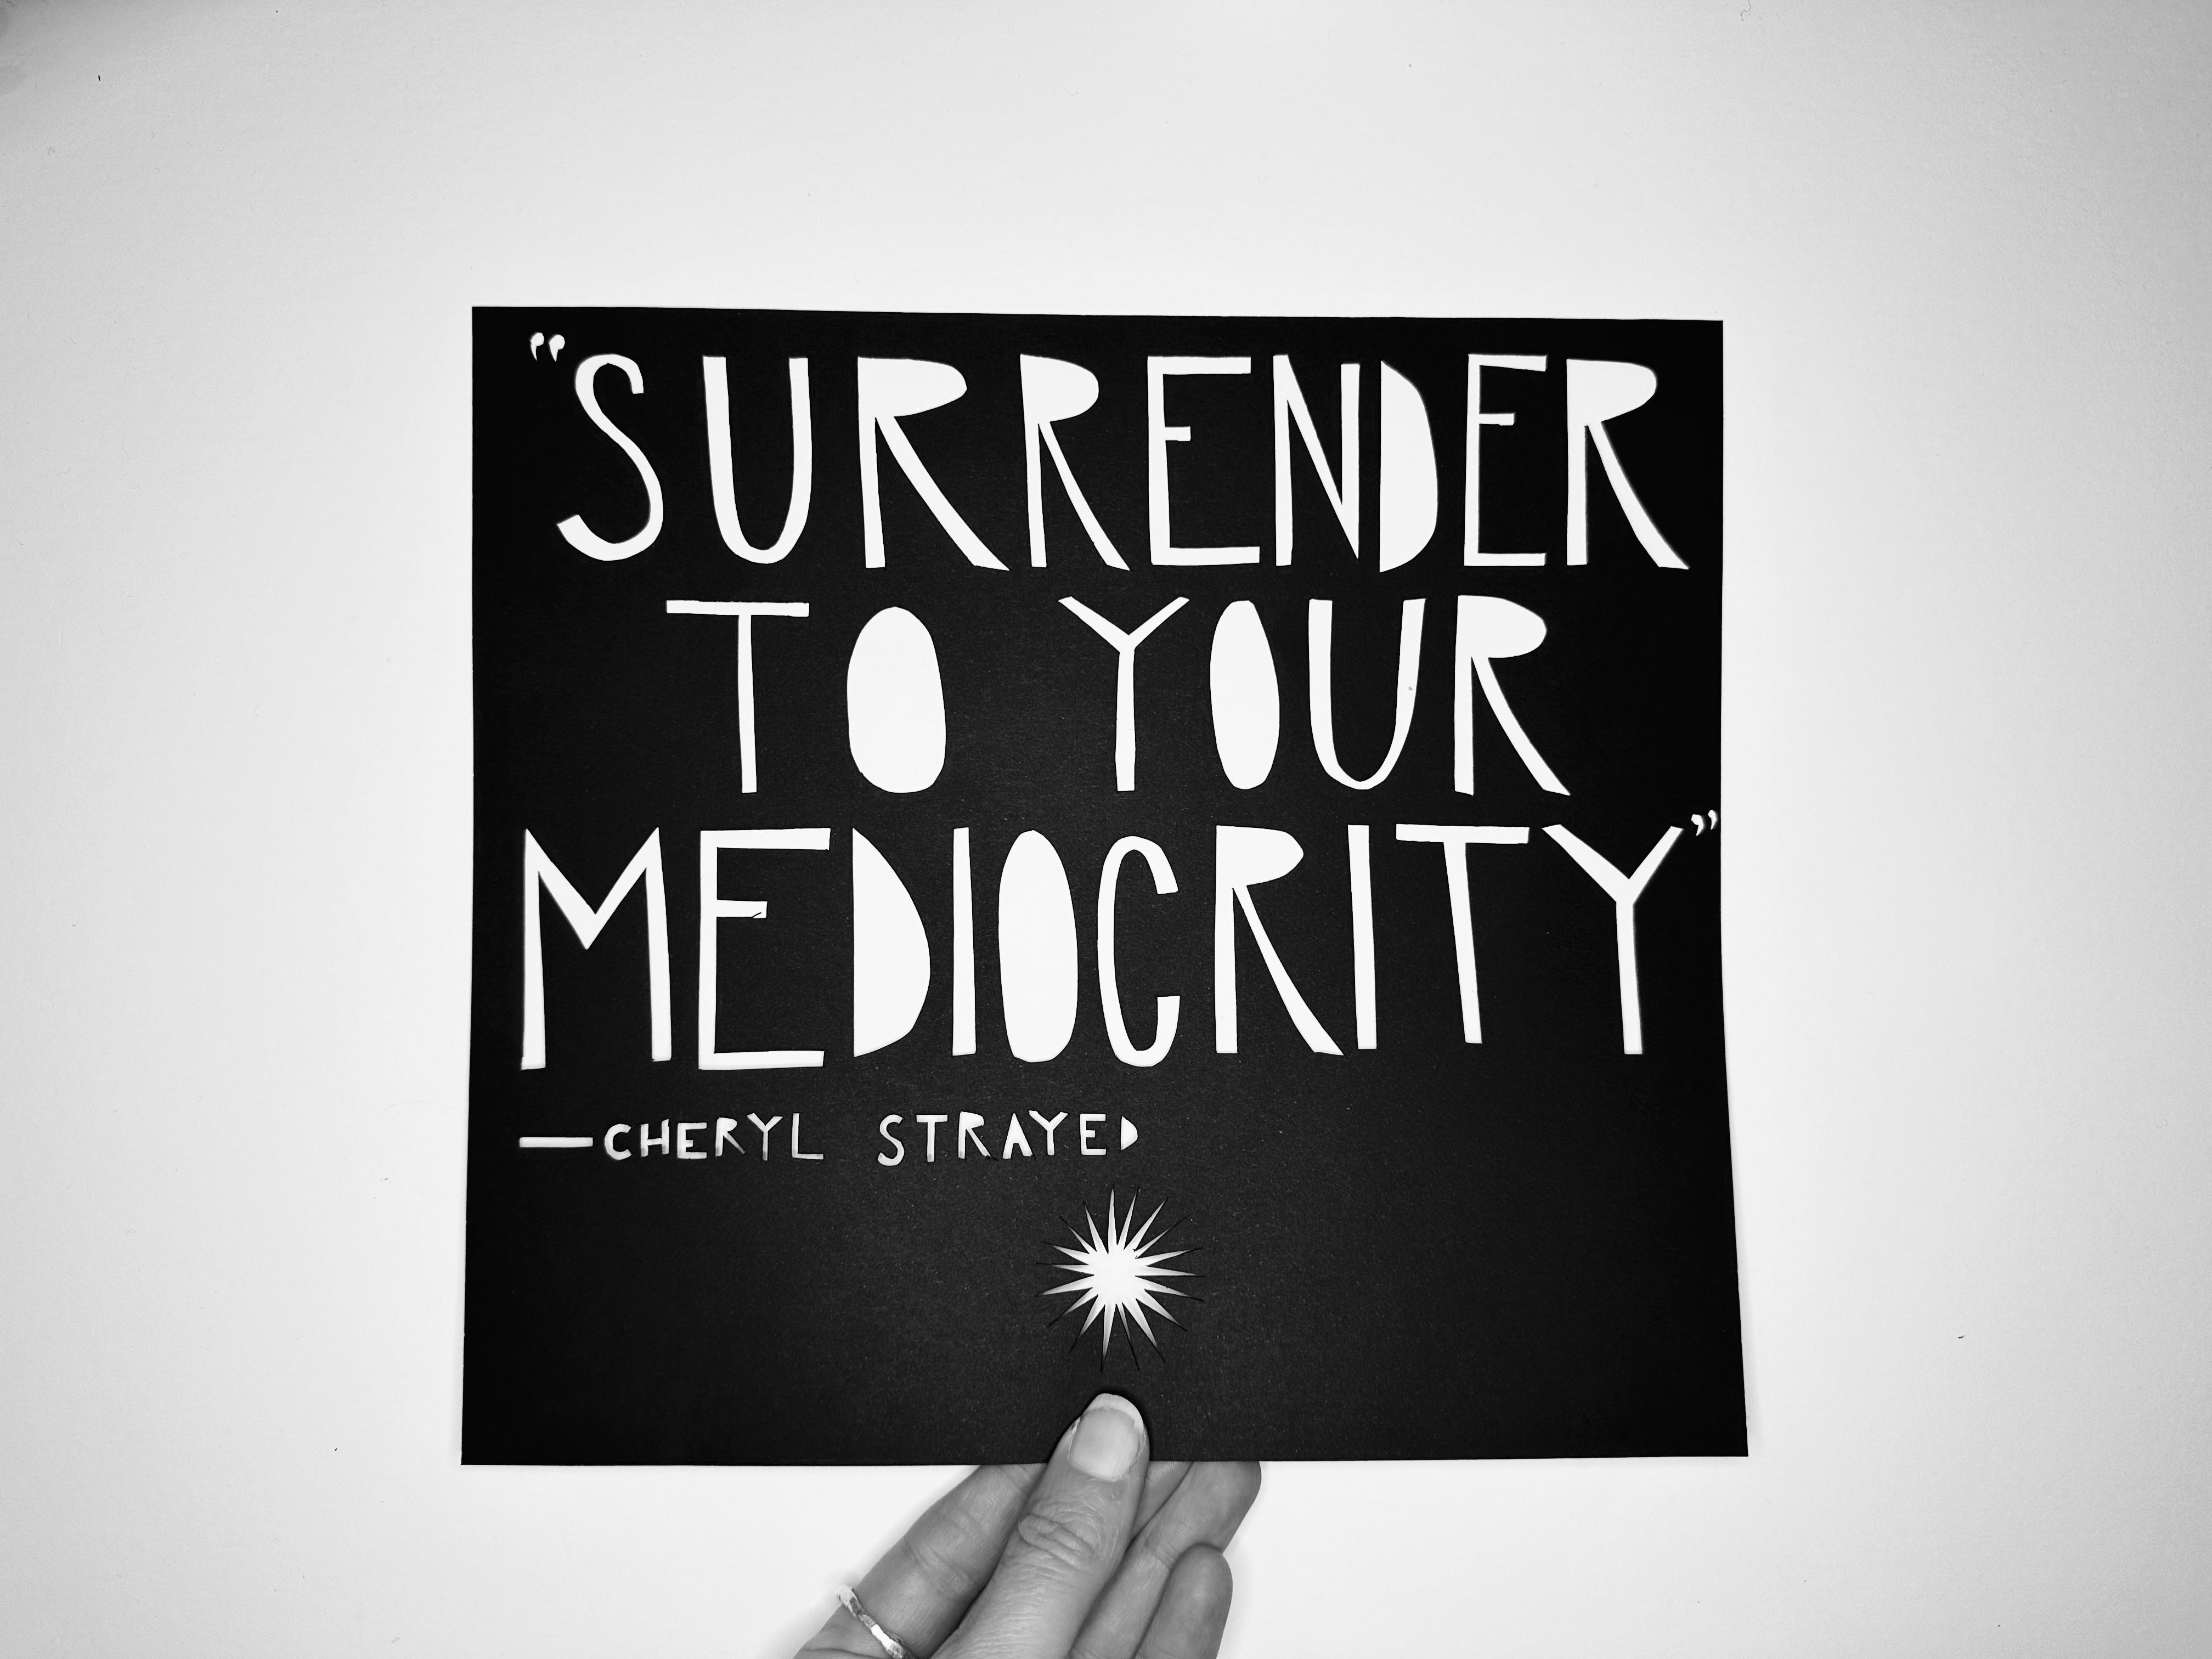 “SURRENDER
TO YOUR
MEDIOCRITY”
—CHERYL STRAYED